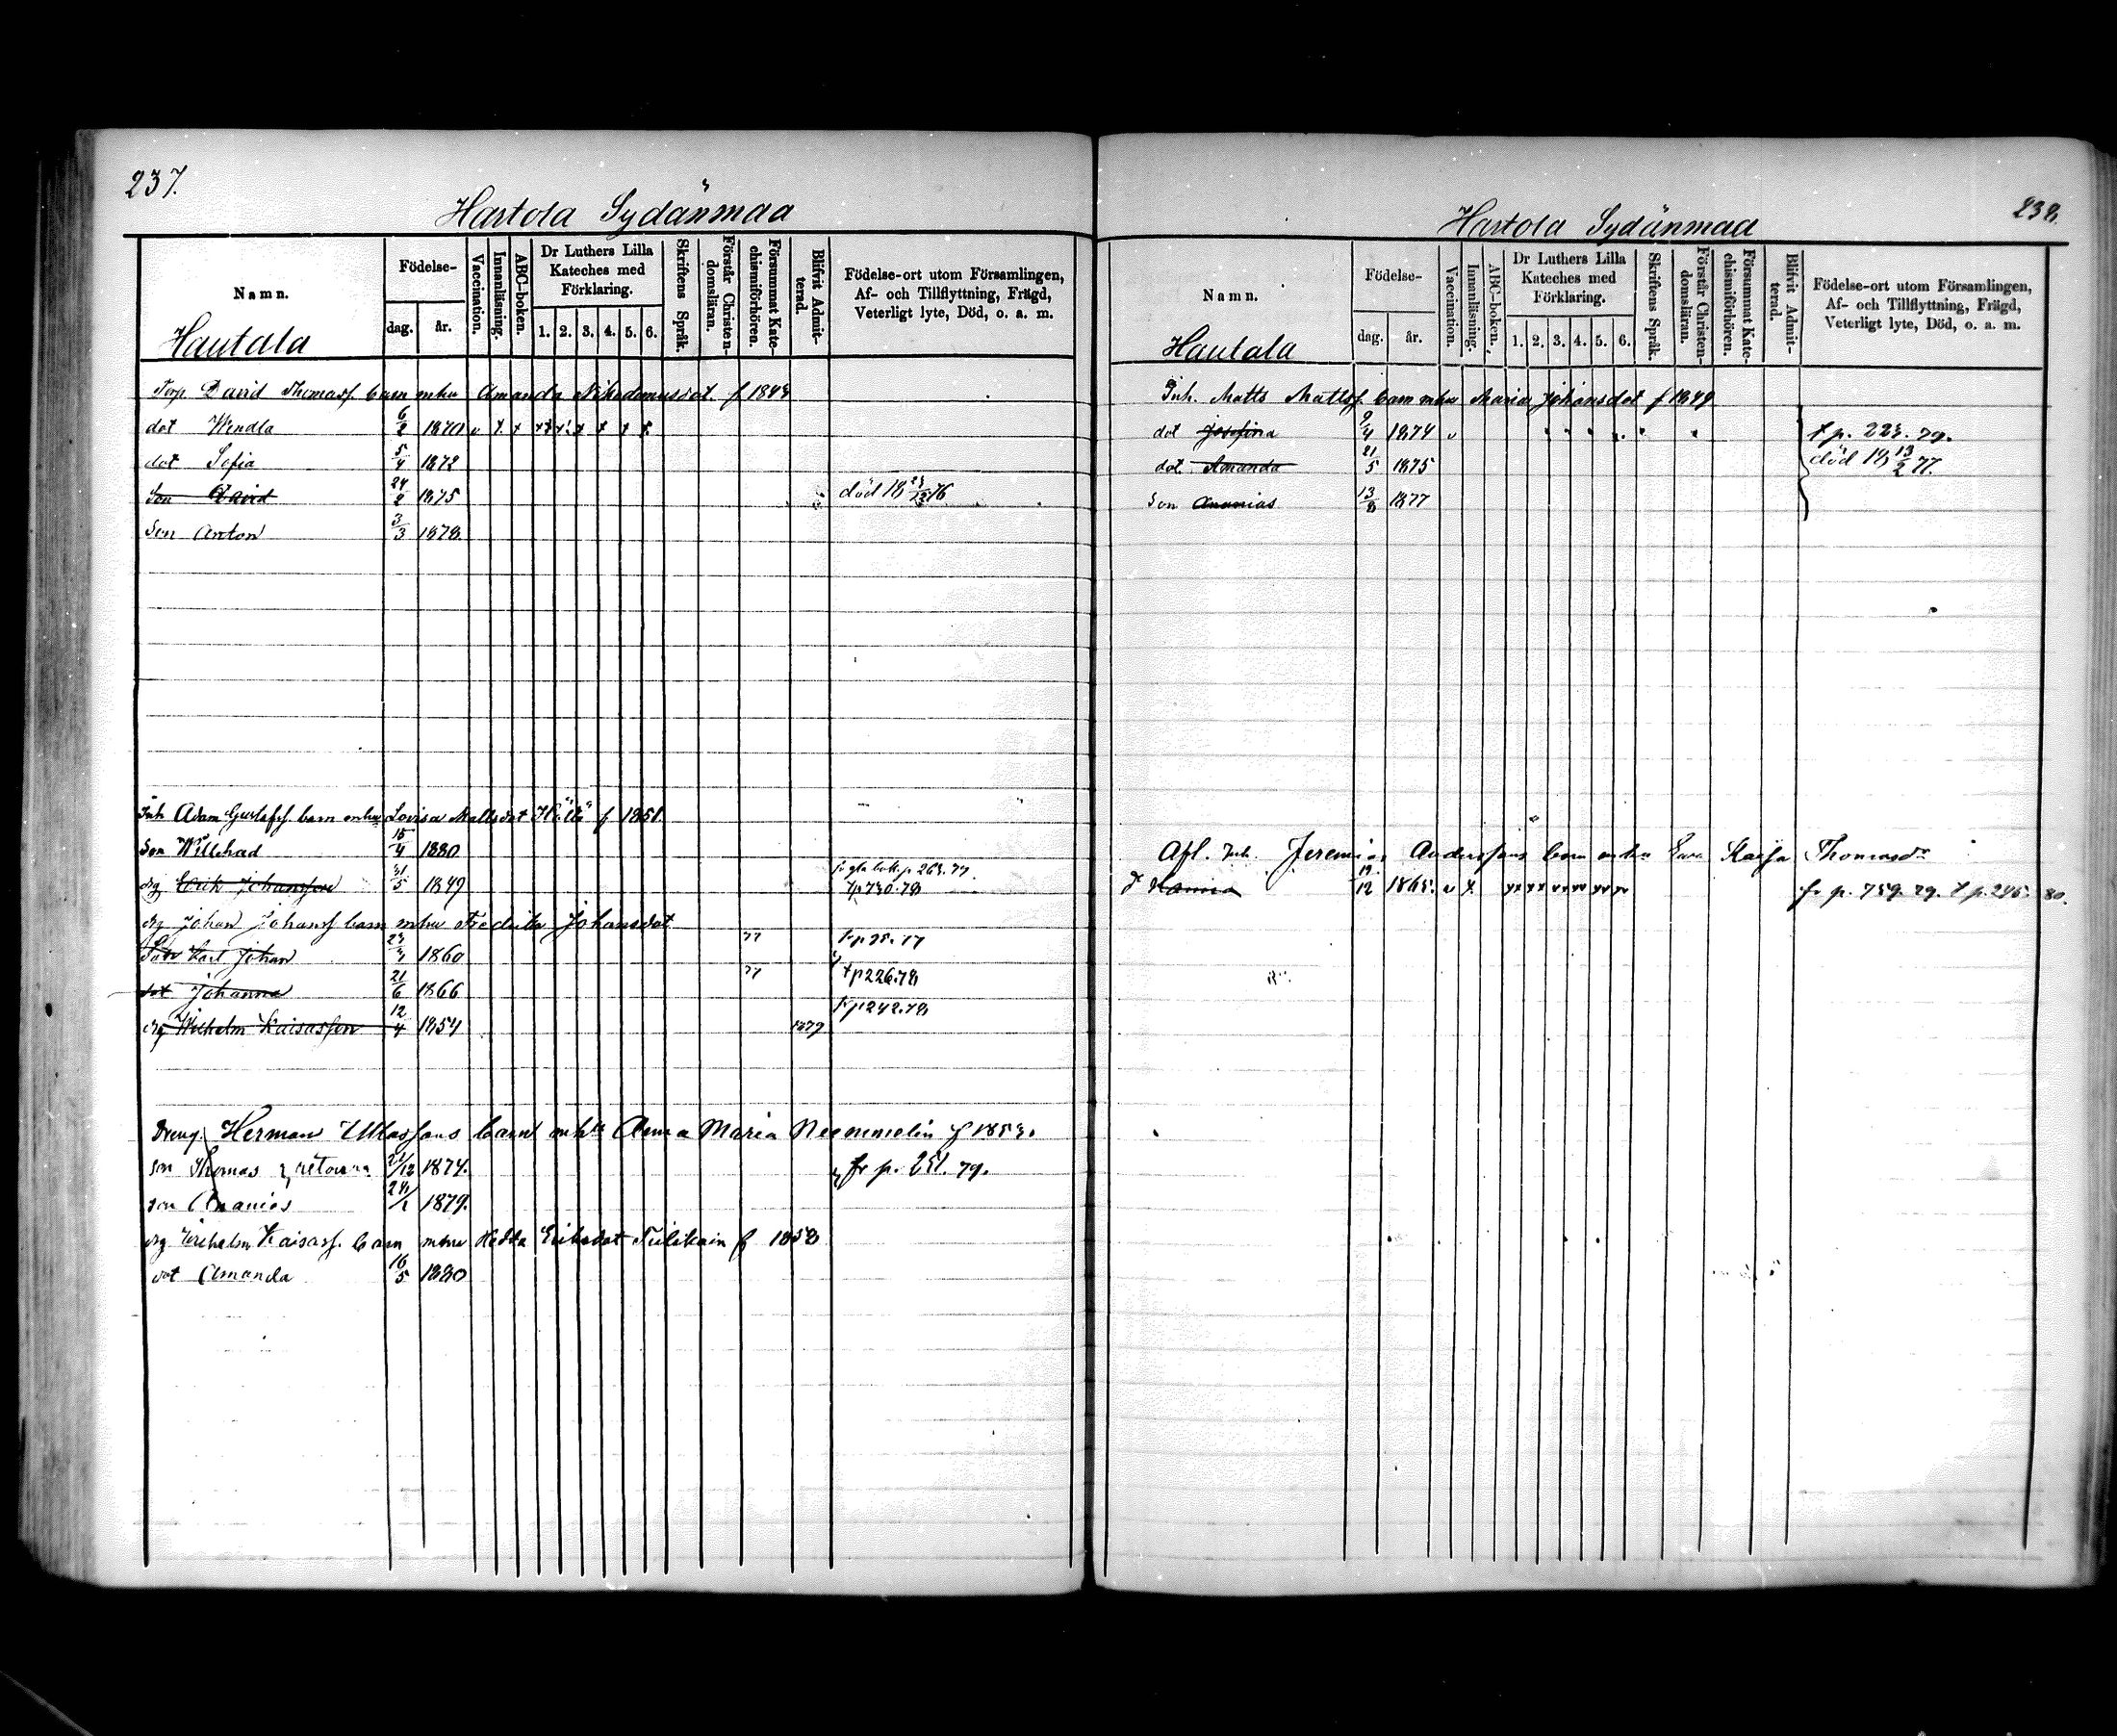 237.
Hartola Sydänmaa
Namn.
Födelse-
dag.
år.
Vaccination.
Innanläsning.
ABC-boken.
Dr Luthers Lilla Kateches med Förklaring.
1. 2. 3. 4. 5. 6.
Skriftens Språk.
Förstår Christendomsläran.
Försummat Katechismiförhören.
Blifvit Admitterad.
Födelse-ort utom Församlingen, Af- och Tillflyttning, Frägd, Veterligt lyte, Död, o. a. m.
Hautala
Torp. David Thomass. barn m hu Amanda Nikodemusdot. f 1843
dot Wendla 6/2 1870 v x x
dot Sofia 5/4 1872
Son David 24/2 1875 död 18 76
Son Anton 3/3 1878.
Inh Adam Gustafss. barn m hu Lovisa Mattsdot f 1851.
Son Willehad 15/4 1880
drg Erik Johansson 31/5 1849 p 263. 77.
p 730. 78
drg Johan Johanss barn m hu Fredrika Johansdot
Son Karl Johan 1860 77
dot Johanna 21/6 1866 77 t p 226. 78
drg Wilhelm Kaisasson 12/4 1854 1879 p 242. 78
Dreng. Herman barn m h Anna Maria f 185
son Thomas 21/12 1874. fr p. 251. 79.
son Ananias 1879.
drg Wilhelm Kaisass. barn m hu Hedda Eriksdot f 1858
dot Amanda 16/5 1880
238.
Hartola Sydänmaa
Namn.
Födelse-
dag.
år.
Vaccination.
Innanläsning.
ABC-boken.
Dr Luthers Lilla Kateches med Förklaring.
1. 2. 3. 4. 5. 6.
Skriftens Språk.
Förstår Christendomsläran.
Försummat Katechismiförhören.
Blifvit Admitterad.
Födelse-ort utom Församlingen, Af- och Tillflyttning, Frägd, Veterligt lyte, Död, o. a. m.
Hautala
Inh. Matts Mattss. barn m hu Maria Johansdot f 1849
dot Josefina 9/4 1874 v t p. 223. 79.
dot Amanda 21/5 1875 död 18 13/2 77.
Son Ananias 13/8 1877
Afl. Inh. Jeremias Anderssons barn m hu Eva Kaisa Thomasdr
d 19/12 1865. v x. fr p. 759. 79. t p. 245. 80.